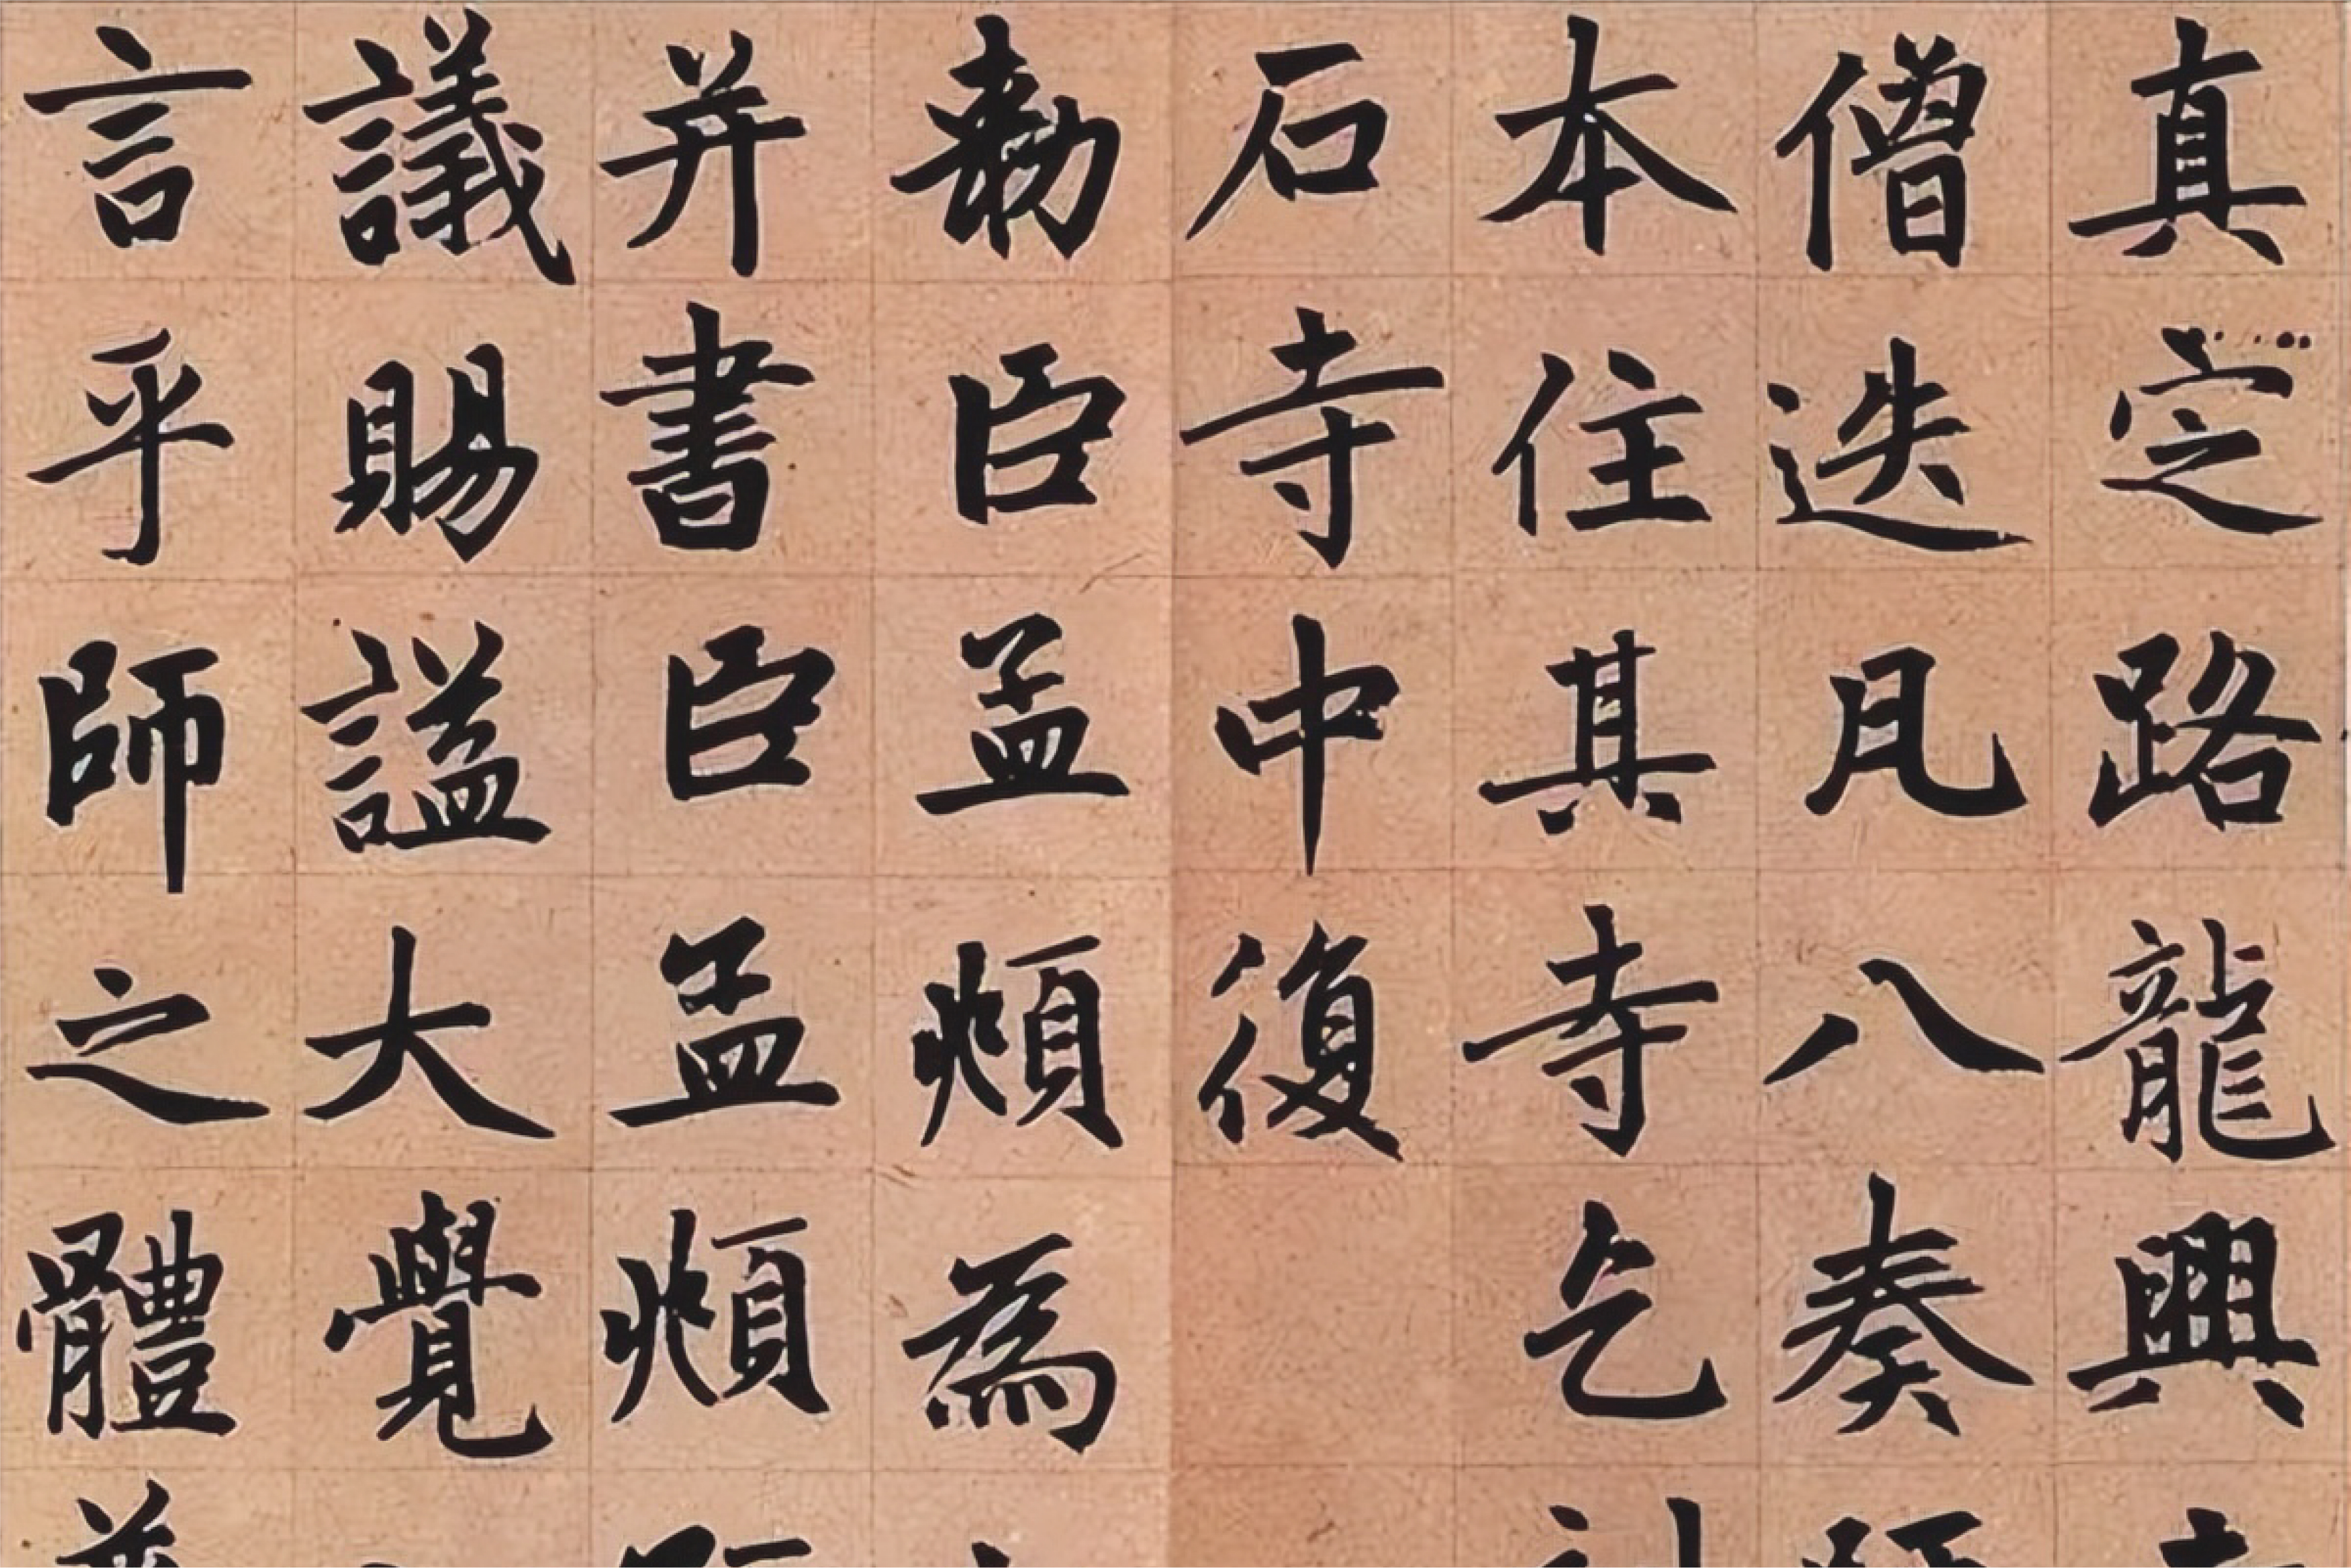 真定路龍興
僧迭凡八奏
本住其寺乞
石寺中復
勑臣孟頫為
并書臣孟頫
議賜謚大覺
言乎師之體